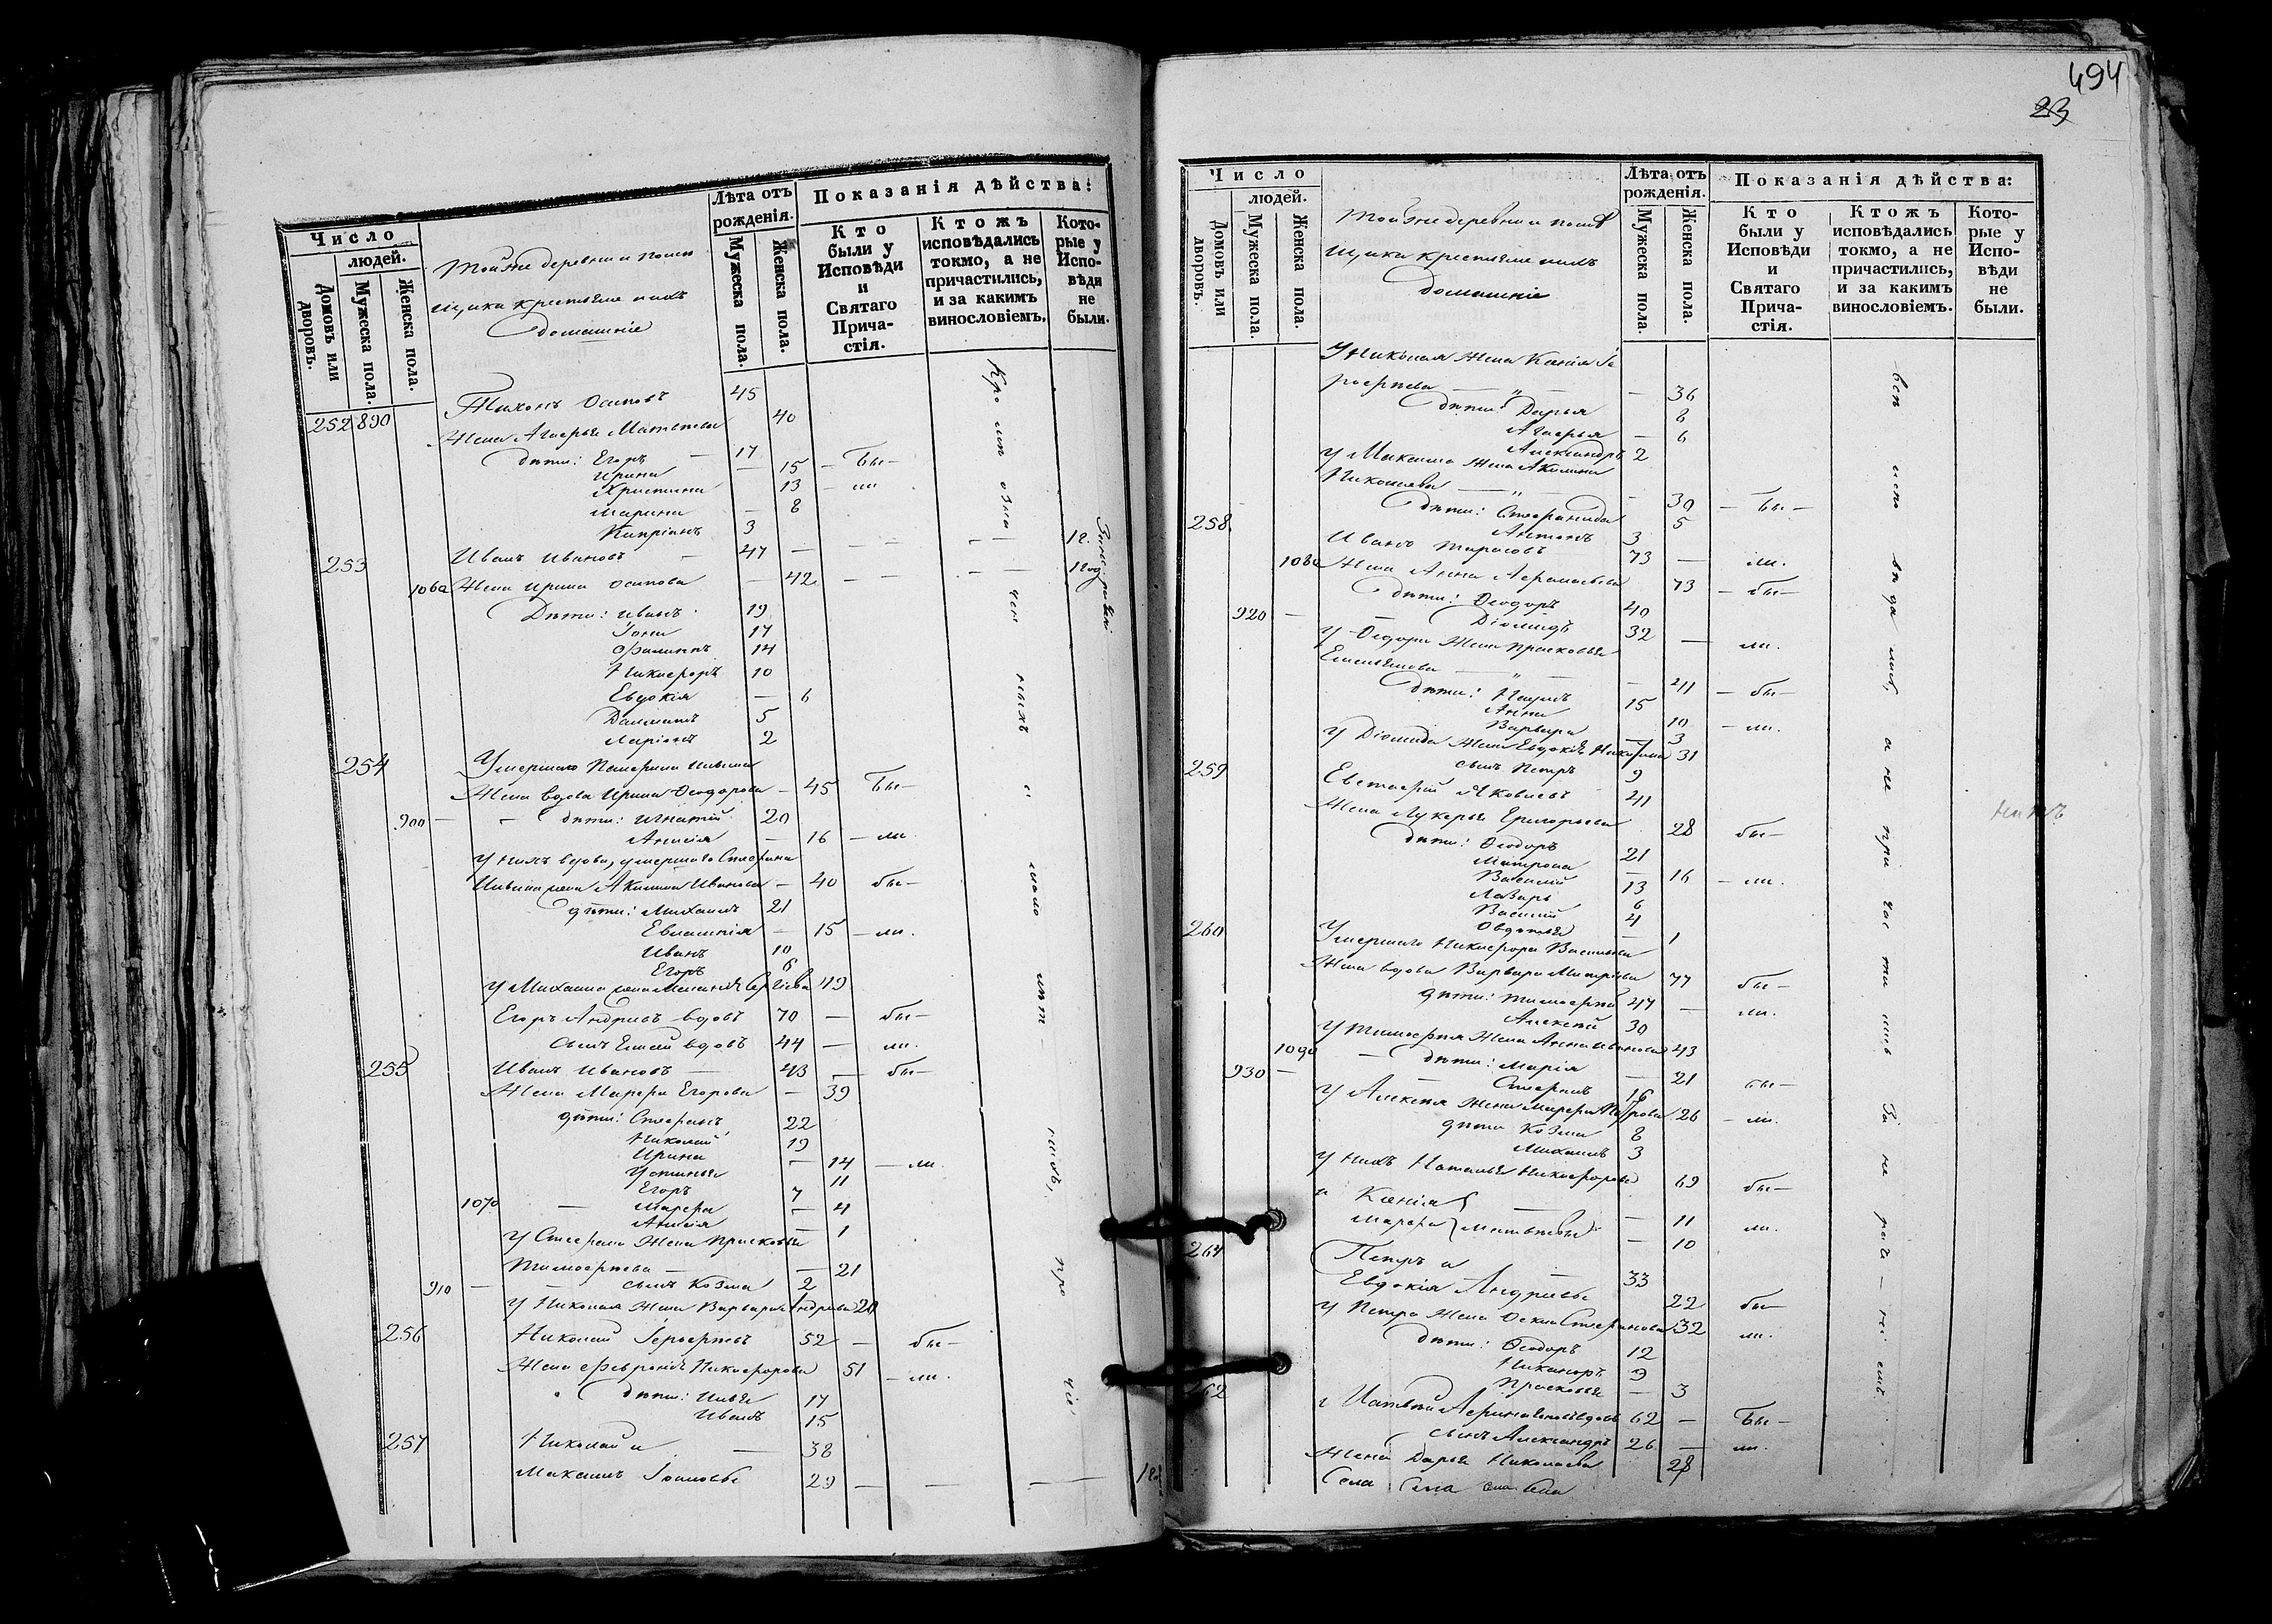 Число
людей.
Домовъ или дворовъ.
Мужеска пола.
Женска пола.
Тойже деревни и помѣ
щика крестьяне и ихъ
домашніе
Лѣта отъ
рожденія.
Мужеска пола.
Женска пола.
Показанія дѣйства:
Кто
были у
Исповѣди
и
Святаго
Прича-
стія.
Ктожъ
исповѣдались
токмо, а не
причастились,
и за какимъ
винословіемъ.
Кото-
рые у
Испо-
вѣди
не
были.
252 890 Тихонъ Осиповъ 45
Жена Агафья Матвѣева 40
дѣти: Егоръ — 17
Ирина — 15 — бы —
Христина 13 — ли
Марина — 8
Кипріанъ 3
253 Иванъ Ивановъ — 47 — — — —
1060 Жена Ирина Осипова — 42 — — — —
Дѣти: Иванъ 19
Іона 17
Филиппъ 14
Никифоръ 10
Евдокія — 6
5
Ларіонъ 2
254 Умершаго
Жена вдова Ирина Ѳеодорова — 45 бы —
900 — — дѣти: Игнатій 20
Анисія — 16 — ли.
У нихъ вдова, умершаго Стефана
жена Акилина Иванова — 40 бы —
дѣти: Михаилъ 21
15 — ли.
Иванъ 10
Егоръ 6
У Михаила жена 19
Егоръ Андреевъ вдовъ 70 — бы —
сынъ Елисей вдовъ 44 — ли.
255 Иванъ Ивановъ — 43 — бы —
Жена Марфа Егорова — 39
дѣти: Стефанъ 22
Николай 19
Ирина — 14 — ли.
Устинья 11
Егоръ 7
1070 — Марфа — 4
Анисія — 1
У Стефана Жена Прасковья
Тимофеева — — 21
910 — — сынъ Козма 2
У Николая Жена Варвара Андреева 20
256 Николай 52 — бы —
Жена Февронія Никифорова 51 — ли.
дѣти: Илья 17
Иванъ 15
257 Николай и — 38
Максимъ 29 — — —
494
23
Число
людей.
Домовъ или дворовъ.
Мужеска пола.
Женска пола.
Тойже деревни и помѣ
щика крестьяне и ихъ
домашніе
Лѣта отъ
рожденія.
Мужеска пола.
Женска пола.
Показанія дѣйства:
Кто
были у
Исповѣди
и
Святаго
Прича-
стія.
Ктожъ
исповѣдались
токмо, а не
причастились,
и за какимъ
винословіемъ.
Кото-
рые у
Испо-
вѣди
не
были.
У Николая Жена Ксенія
— „ — — 36
дѣти: Дарья 8
Агафья — 6
Александръ 2
У Максима Жена Акилина
Николаева — „ — — 30 — бы —
дѣти: Стефанида 5
Антонъ 3
258 Иванъ Тарасовъ 73 — ли.
1080 Жена Анна 73 — бы —
дѣти: Ѳеодоръ 40
920 — Діомидъ 32 — ли.
У Ѳеодора Жена Прасковья
Емельянова — „ — — 41 — бы —
дѣти: Наумъ 15
Анна 10 — ли.
Варвара — 3
У Діомида Жена Евдокія 31
сынъ Петръ 9
259 Евстафій Яковлевъ 41
Жена Лукерья Григорьева 28 бы —
дѣти: Ѳеодоръ 21
Матрона — 16 — ли.
Василій 13
Лазарь 6
Василій 4
Овдотья — 1
260 Умершаго Никифора Васильева
Жена вдова Варвара 77 бы —
дѣти: Тимофей 47 — ли.
Алексѣй 30
У Тимофея Жена Анна Иванова 43
1090 — дѣти: Марія — 21 бы —
930 — Стефанъ 16
У Алексѣя Жена Марфа Петрова 26 — ли.
дѣти Козма 8
Михаилъ 3
У нихъ Наталья Никифорова 69 бы —
и Ксенія — — 11 ли.
Марфа Матвѣевы — 10
261 Петръ и — 33
Евдокія Андреевы 22 бы —
У Петра Жена Стефанова 32 ли.
дѣти: Ѳеодоръ 12
Никаноръ 9
Прасковья — 3
262 вдовъ 62 — бы —
сынъ Александръ 26 — ли.
Жена Дарья Николаева 28
Села Села